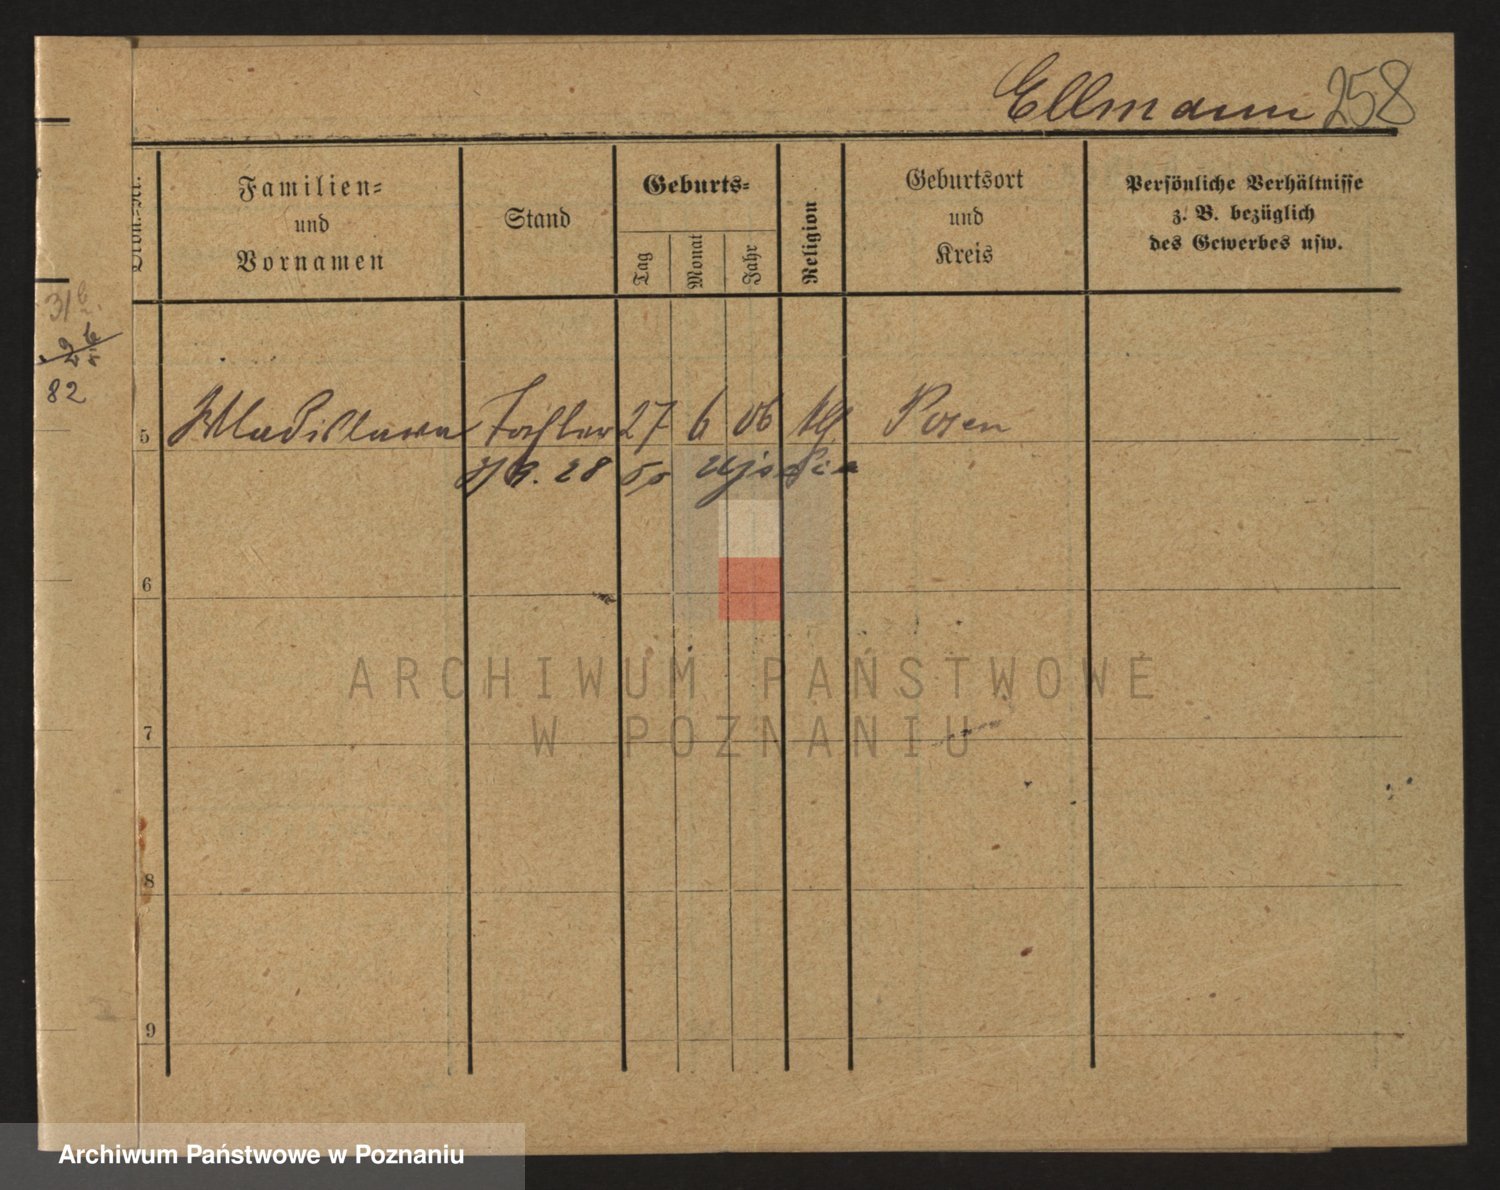 Ellmann 258
Ordn.-Nr.
Familien-
und
Vornamen
Stand
Geburts-
Tag
Monat
Jahr
Religion
Geburtsort
und
Kreis
Persönliche Verhältnisse
z. B. bezüglich
des Gewerbes usw.
82
5 Wladislawa Tochter 27 6 06 Posen
28
6
7
8
9
ARCHIWUM PAŃSTWOWE
W POZNANIU
Archiwum Państwowe w Poznaniu